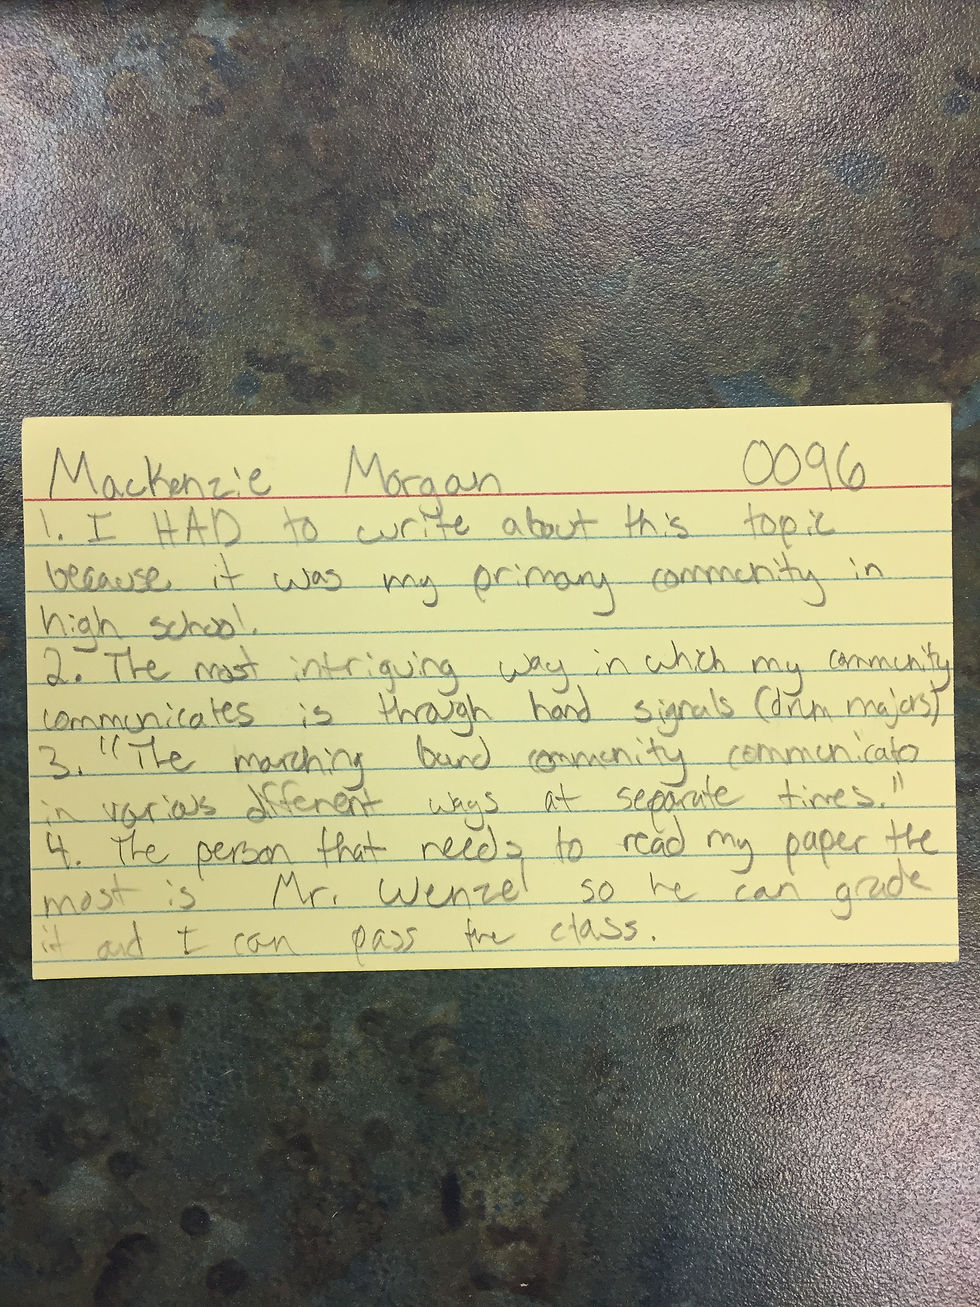 Mackenzie Morgan 0096
1. I HAD to write about this topic
because it was my primary community in
high school.
2. The most intriguing way in which my community
communicates is through hand signals (drum majors)
3. "The marching band community communicates
in various different ways at separate times."
4. The person that needs to read my paper the
most is Mr. Wenzel so he can grade
it and I can pass the class.